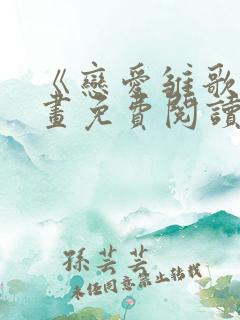 《戀愛雏歌
畫免費閱讀
孫芸芸
未經同意禁止轉載